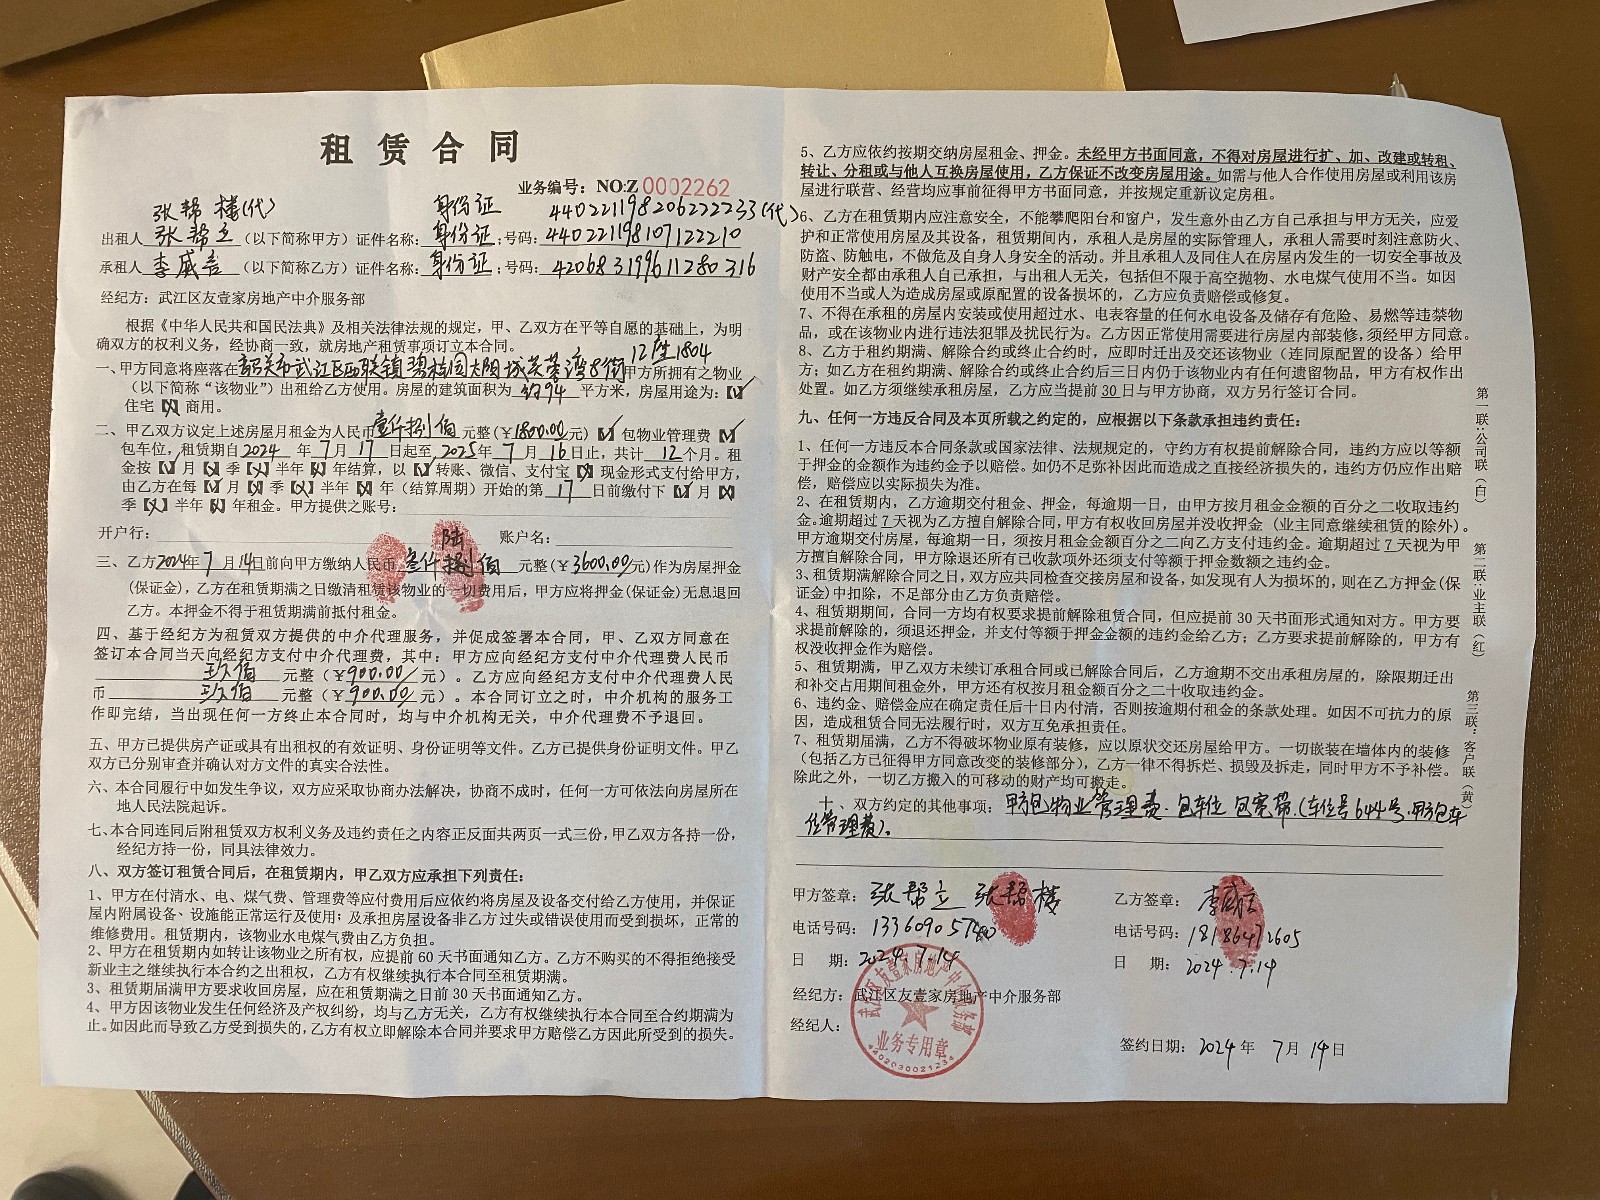 租赁合同
业务编号：NO:Z 0002262
张帮楼(代) 身份证 440221198206222233(代)
出租人 张帮立 （以下简称甲方）证件名称：身份证；号码：440221198107122210
承租人 李威 （以下简称乙方）证件名称：身份证；号码：420683199611280316
经纪方：武江区友壹家房地产中介服务部
根据《中华人民共和国民法典》及相关法律法规的规定，甲、乙双方在平等自愿的基础上，为明
确双方的权利义务，经协商一致，就房地产租赁事项订立本合同。
一、甲方同意将座落在韶关市武江区西联镇碧桂园太阳城芙蓉湾8街12座1804甲方所拥有之物业
（以下简称“该物业”）出租给乙方使用。房屋的建筑面积为 约94 平方米，房屋用途为：【✓】
住宅【乂】商用。
二、甲乙双方议定上述房屋月租金为人民币 壹仟捌佰 元整（￥1800.00元）【✓】包物业管理费【✓】
包车位，租赁期自2024年7月17日起至2025年7月16日止，共计12个月。租
金按【✓】月【乂】季【乂】半年【乂】年结算，以【✓】转账、微信、支付宝【乂】现金形式支付给甲方，
由乙方在每【✓】月【乂】季【乂】半年【乂】年（结算周期）开始的第 17 日前缴付下【✓】月【乂】
季【乂】半年【乂】年租金。甲方提供之账号：
开户行： 账户名：
三、乙方2024年7月14日前向甲方缴纳人民币 叁仟陆佰 元整（￥3600.00/元）作为房屋押金
（保证金），乙方在租赁期满之日缴清租赁该物业的一切费用后，甲方应将押金（保证金）无息退回
乙方。本押金不得于租赁期满前抵付租金。
四、基于经纪方为租赁双方提供的中介代理服务，并促成签署本合同，甲、乙双方同意在
签订本合同当天向经纪方支付中介代理费，其中：甲方应向经纪方支付中介代理费人民币
玖佰 元整（￥900.00/元）。乙方应向经纪方支付中介代理费人民
币 玖佰 元整（￥900.00/元）。本合同订立之时，中介机构的服务工
作即完结，当出现任何一方终止本合同时，均与中介机构无关，中介代理费不予退回。
五、甲方已提供房产证或具有出租权的有效证明、身份证明等文件。乙方已提供身份证明文件。甲乙
双方已分别审查并确认对方文件的真实合法性。
六、本合同履行中如发生争议，双方应采取协商办法解决，协商不成时，任何一方可依法向房屋所在
地人民法院起诉。
七、本合同连同后附租赁双方权利义务及违约责任之内容正反面共两页一式三份，甲乙双方各持一份，
经纪方持一份，同具法律效力。
八、双方签订租赁合同后，在租赁期内，甲乙双方应承担下列责任：
1、甲方在付清水、电、煤气费、管理费等应付费用后应依约将房屋及设备交付给乙方使用，并保证
屋内附属设备、设施能正常运行及使用；及承担房屋设备非乙方过失或错误使用而受到损坏，正常的
维修费用。租赁期内，该物业水电煤气费由乙方负担。
2、甲方在租赁期内如转让该物业之所有权，应提前60天书面通知乙方。乙方不购买的不得拒绝接受
新业主之继续执行本合约之出租权，乙方有权继续执行本合同至租赁期满。
3、租赁期届满甲方要求收回房屋，应在租赁期满之日前30天书面通知乙方。
4、甲方因该物业发生任何经济及产权纠纷，均与乙方无关，乙方有权继续执行本合同至合约期满为
止。如因此而导致乙方受到损失的，乙方有权立即解除本合同并要求甲方赔偿乙方因此所受到的损失。
5、乙方应依约按期交纳房屋租金、押金。未经甲方书面同意，不得对房屋进行扩、加、改建或转租、
转让、分租或与他人互换房屋使用，乙方保证不改变房屋用途。如需与他人合作使用房屋或利用该房
屋进行联营、经营均应事前征得甲方书面同意，并按规定重新议定房租。
6、乙方在租赁期内应注意安全，不能攀爬阳台和窗户，发生意外由乙方自己承担与甲方无关，应爱
护和正常使用房屋及其设备，租赁期间内，承租人是房屋的实际管理人，承租人需要时刻注意防火、
防盗、防触电，不做危及自身人身安全的活动。并且承租人及同住人在房屋内发生的一切安全事故及
财产安全都由承租人自己承担，与出租人无关，包括但不限于高空抛物、水电煤气使用不当。如因
使用不当或人为造成房屋或原配置的设备损坏的，乙方应负责赔偿或修复。
7、不得在承租的房屋内安装或使用超过水、电表容量的任何水电设备及储存有危险、易燃等违禁物
品，或在该物业内进行违法犯罪及扰民行为。乙方因正常使用需要进行房屋内部装修，须经甲方同意。
8、乙方于租约期满、解除合约或终止合约时，应即时迁出及交还该物业（连同原配置的设备）给甲
方；如乙方在租约期满、解除合约或终止合约后三日内仍于该物业内有任何遗留物品，甲方有权作出
处置。如乙方须继续承租房屋，乙方应当提前30日与甲方协商，双方另行签订合同。
九、任何一方违反合同及本页所载之约定的，应根据以下条款承担违约责任：
1、任何一方违反本合同条款或国家法律、法规规定的，守约方有权提前解除合同，违约方应以等额
于押金的金额作为违约金予以赔偿。如仍不足弥补因此而造成之直接经济损失的，违约方仍应作出赔
偿，赔偿应以实际损失为准。
2、在租赁期内，乙方逾期交付租金、押金，每逾期一日，由甲方按月租金金额的百分之二收取违约
金。逾期超过7天视为乙方擅自解除合同，甲方有权收回房屋并没收押金（业主同意继续租赁的除外）。
甲方逾期交付房屋，每逾期一日，须按月租金金额百分之二向乙方支付违约金。逾期超过7天视为甲
方擅自解除合同，甲方除退还所有已收款项外还须支付等额于押金数额之违约金。
3、租赁期满解除合同之日，双方应共同检查交接房屋和设备，如发现有人为损坏的，则在乙方押金（保
证金）中扣除，不足部分由乙方负责赔偿。
4、租赁期期间，合同一方均有权要求提前解除租赁合同，但应提前30天书面形式通知对方。甲方要
求提前解除的，须退还押金，并支付等额于押金金额的违约金给乙方；乙方要求提前解除的，甲方有
权没收押金作为赔偿。
5、租赁期满，甲乙双方未续订承租合同或已解除合同后，乙方逾期不交出承租房屋的，除限期迁出
和补交占用期间租金外，甲方还有权按月租金额百分之二十收取违约金。
6、违约金、赔偿金应在确定责任后十日内付清，否则按逾期付租金的条款处理。如因不可抗力的原
因，造成租赁合同无法履行时，双方互免承担责任。
7、租赁期届满，乙方不得破坏物业原有装修，应以原状交还房屋给甲方。一切嵌装在墙体内的装修
（包括乙方已征得甲方同意改变的装修部分），乙方一律不得拆烂、损毁及拆走，同时甲方不予补偿。
除此之外，一切乙方搬入的可移动的财产均可搬走。
十、双方约定的其他事项：甲方包物业管理费、包车位 包宽带.(车位号644号.甲方包车
位管理费)。
甲方签章：张帮立 张帮楼
电话号码：13360905780
日 期：2024.7.14
经纪方：武江区友壹家房地产中介服务部
经纪人：
乙方签章：李威
电话号码：18186472605
日 期：2024.7.14
签约日期：2024年7月14日
武江区友壹家房地产中介服务部
业务专用章
4402030021234
第一联：公司联（白）
第二联：业主联（红）
第三联：客户联（黄）